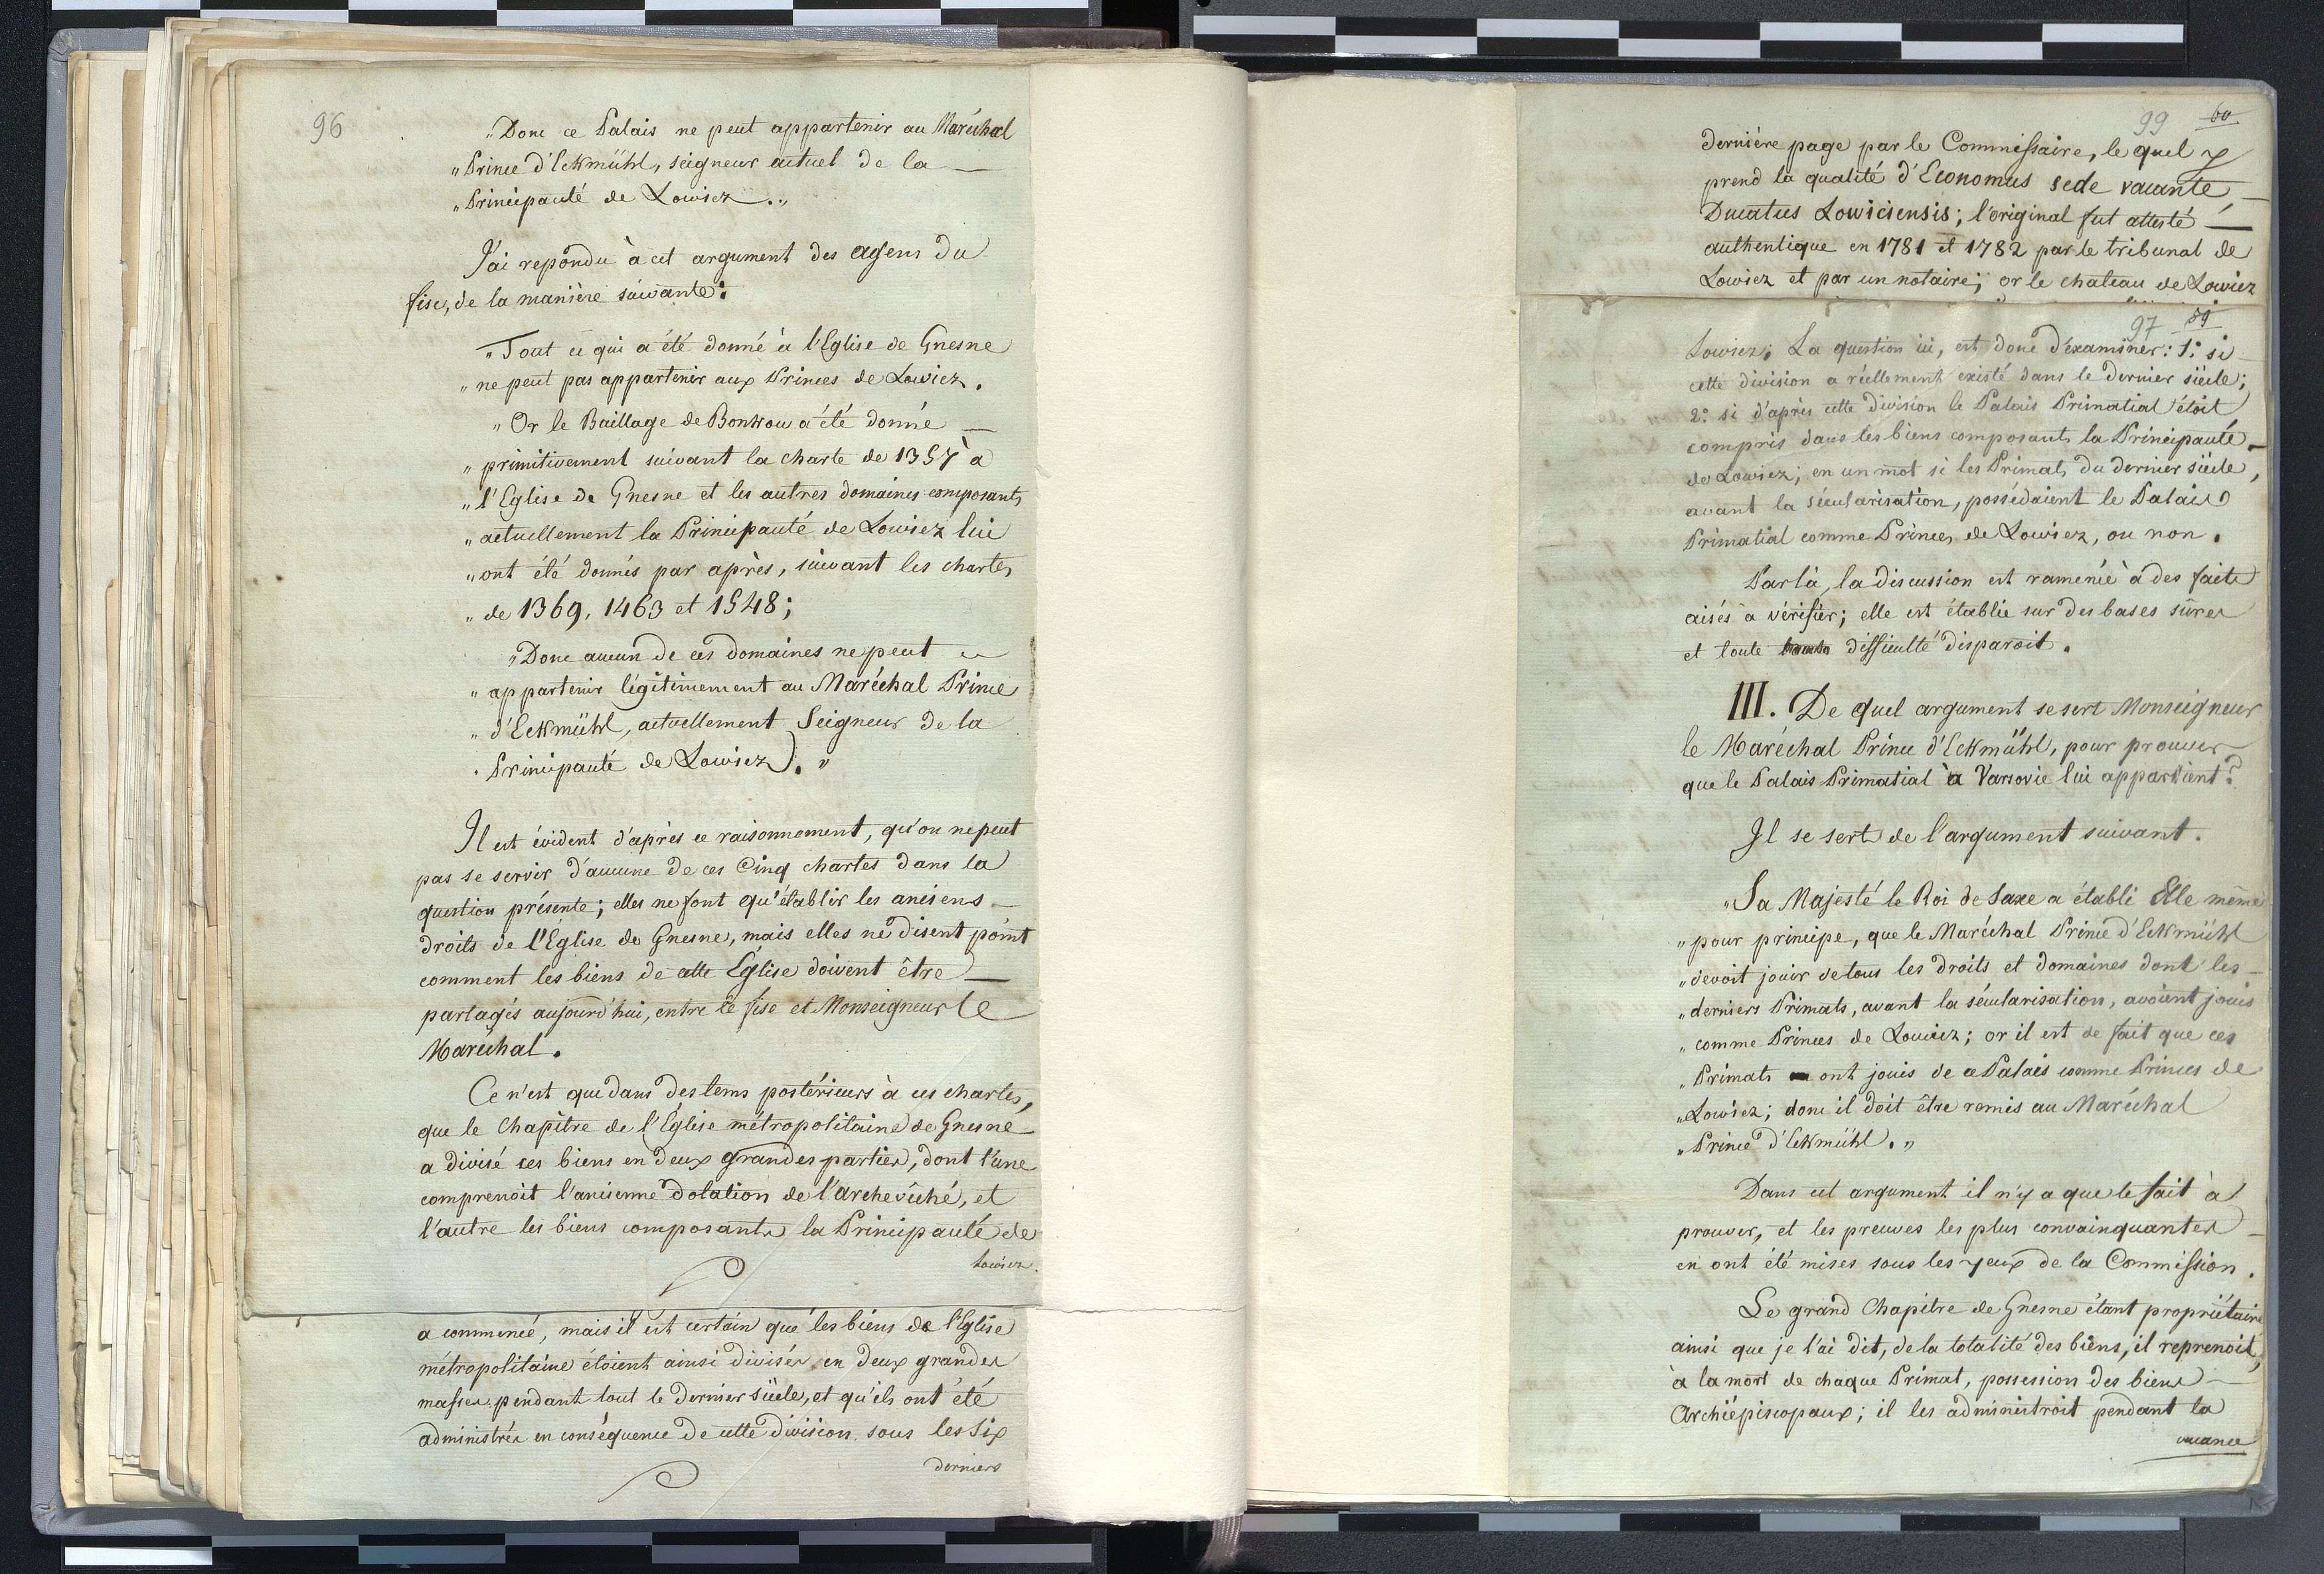 96
„Donc ce Palais ne peut appartenir au Maréchal
„Prince d'Eckmühl, seigneur actuel de la
„Principauté de Lowicz.„
J'ai repondu à cet argument des agens du
fisc, de la manière suivante:
„Tout ce qui a été donné à l'Eglise de Gnesne
„ne peut pas appartenir aux Princes de Lowicz.
„Or le Baillage de Bonkow a été donné
„primitivement suivant la charte de 1357 à
„l'Eglise de Gnesne et les autres domaines composants
„actuellement la Principauté de Lowicz lui
„ont été donnés par après, suivant les chartes
„de 1369, 1463 et 1548;
„Donc aucun de ces domaines ne peut
„appartenir légitimement au Maréchal Prince
„d'Eckmühl, actuellement Seigneur de la
„Principauté de Lowicz).„
Il est évident d'après ce raisonnement, qu'on ne peut
pas se servir d'aucune de ces Cinq chartes dans la
question présente; elles ne font qu'établir les anciens
droits de l'Eglise de Gnesne, mais elles ne disent point
comment les biens de cette Eglise doivent être
partagés aujourd'hui, entre le fisc et Monseigneur le
Maréchal.
Ce n'est que dans des tems postérieurs à ces chartes,
que le Chapitre de l'Eglise métropolitaine de Gnesne
a divisé ses biens en deux grandes parties, dont l'une
comprenoit l'ancienne dotation de l'archevêché, et
l'autre les biens composants la Principauté de
Lowicz.
a commencé, mais il est certain que les biens de l'Eglise
métropolitaine étoient ainsi divisés en deux grandes
masses pendant tout le dernier siècle, et qu'ils ont été
administrés en conséquence de cette division sous les Six
derniers
99 60
dernière page par le Commissaire, le quel y
prend la qualité d'Economus sede vacante,
Ducatus Lowiciensis; l'original fut attesté
authentique en 1781 et 1782 par le tribunal de
Lowicz et par un notaire; or le chateau de Lowicz
97 59
Lowicz; La question ici, est donc d'examiner: 1.° si
cette division a réellement existé dans le dernier siècle;
2.° si d'après cette division le Palais Primatial étoit
compris dans les biens composants la Principauté
de Lowicz; en un mot si les Primats du dernier siècle,
avant la sécularisation, possédaient le Palais
Primatial comme Princes de Lowicz, ou non.
Par là, la discussion est ramenée à des faits
aisés à vérifier; elle est établie sur des bases sûres
et toute difficulté disparoit.
III. De quel argument se sert Monseigneur
le Maréchal Prince d'Eckmühl, pour prouver
que le Palais Primatial à Varsovie lui appartient?
Il se sert de l'argument suivant.
„Sa Majesté le Roi de Saxe a établi Elle même
„pour principe, que le Maréchal Prince d'Eckmühl
„devoit jouir de tous les droits et domaines dont les
„derniers Primats, avant la sécularisation, avoient jouis
„comme Princes de Lowicz; or il est de fait que ces
„Primats ont jouis de ce Palais comme Princes de
„Lowicz; donc il doit être remis au Maréchal
„Prince d'Eckmühl.„
Dans cet argument il n'y a que le fait à
prouver, et les preuves les plus convainquantes
en ont été mises sous les yeux de la Commission.
Le grand Chapitre de Gnesne étant propriétaire
ainsi que je l'ai dit, de la totalité des biens, il reprenoit,
à la mort de chaque Primat, possession des biens
Archiépiscopaux; il les administroit pendant la
vacance